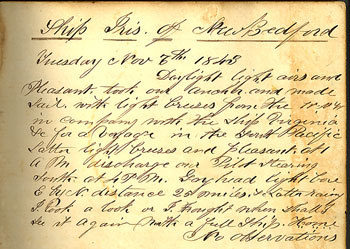 Ship Iris. of New Bedford
Tuesday Nov 7th 1848
Daylight light airs and
Pleasant. took our anchor and made
Sail with light breezes from the
in company with the Ship Virginia
&c for a voyage in the South Pacific
Latter light breezes and pleasant. at
PM. discharge our Pilot Stearing
South at 4 P.M. Gayhead light bore
distance 25 miles. Latter
I took a look or I thought when shall I
see it again with a full Ship.
No observations